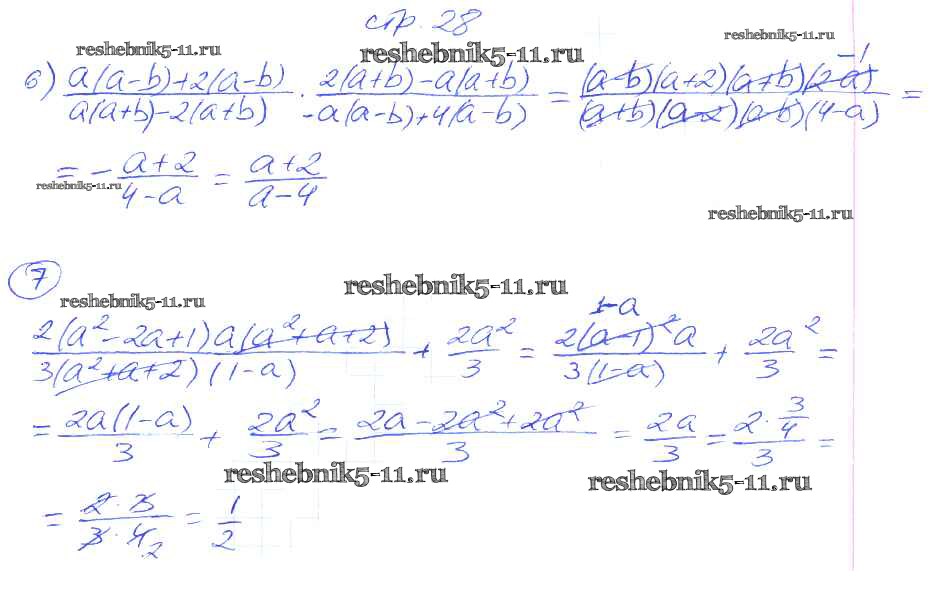 стр. 28
reshebnik5-11.ru
reshebnik5-11.ru
reshebnik5-11.ru
6) (a(a-b)+2(a-b))/(a(a+b)-2(a+b)) · (2(a+b)-a(a+b))/(-a(a-b)+4(a-b)) = ((a-b)(a+2)(a+b)(2-a) -1)/((a+b)(a-2)(a-b)(4-a)) =
= - (a+2)/(4-a) = (a+2)/(a-4)
reshebnik5-11.ru
reshebnik5-11.ru
7
reshebnik5-11.ru
reshebnik5-11.ru
(2(a²-2a+1)a(a²+a+2))/(3(a²+a+2)(1-a)) + 2a²/3 = (2(a-1)²a 1-a)/(3(1-a)) + 2a²/3 =
= 2a(1-a)/3 + 2a²/3 = (2a-2a²+2a²)/3 = 2a/3 = (2·3/4)/3 =
reshebnik5-11.ru
reshebnik5-11.ru
= (2·3)/(3·4 2) = 1/2